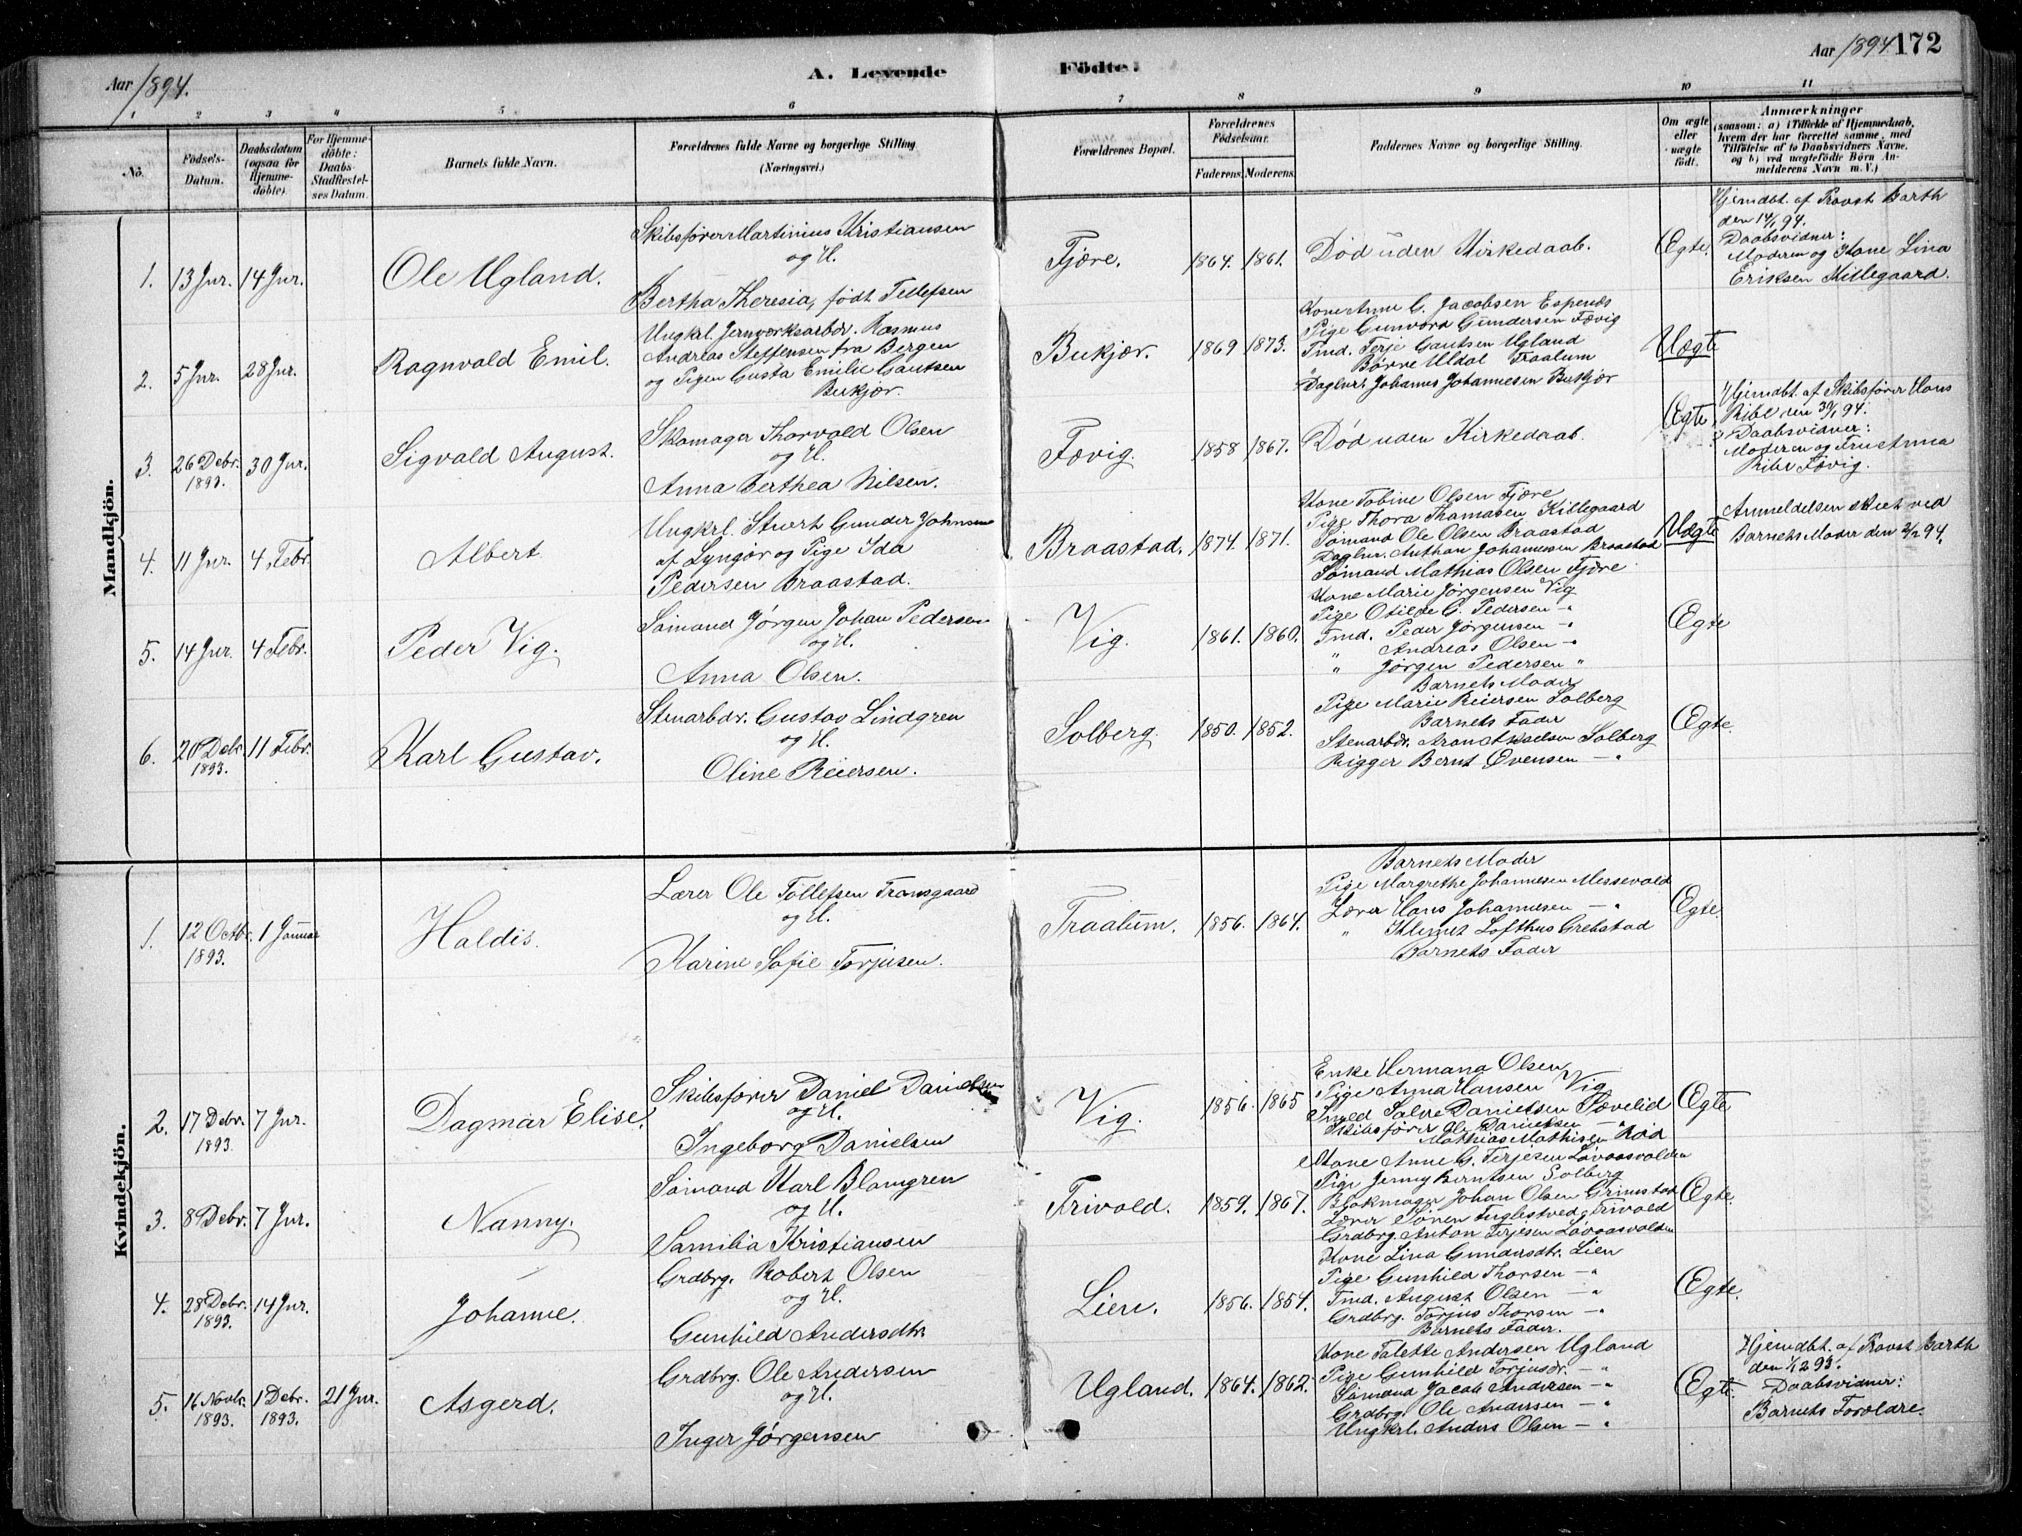 Aar 1894.
A. Levende
Födte.
Aar 1894.
172
1
2
3
4
5
6
7
8
9
10
11
No.
Födsels-
Datum.
Daabsdatum
(ogsaa for
Hjemme-
döbte).
For Hjemme-
döbte:
Daabs
Stadfæstel-
ses Datum.
Barnets fulde Navn.
Forældrenes fulde Navne og borgerlige Stilling
(Næringsvei.)
Forældrenes Bopæl.
Forældrenes
Födselsaar.
Faderens.
Moderens.
Faddernes Navne og borgerlige Stilling.
Om ægte
eller
uægte
födt.
Anmærkninger
(saasom: a) i Tilfælde af Hjemmedaab,
hvem der har forrettet samme, med
Tilföielse af to Daabsvidners Navne,
og b) ved uægtefödte Börn An-
melderens Navn m. V.)
Mandkjön.
1.
13 Jnr.
14 Jnr.
Ole Ugland.
Skibsfører Martinius Kristiansen
og H.
Bertha Theresia, født Tellefsen
Fjære.
1864.
1861.
Død uden Kirkedaab.
Ægte.
Hjemdbt. af Provst Barth
den 14/1 94.
Daabsvidner:
Moderen og Kone Lina
Eriksen Killegaard.
2.
5 Jnr.
28 Jnr.
Ragnvald Emil.
Ungkrl. Jernværksarbdr. Rasmus
Andreas Steffensen fra Bergen
og Pigen Gusta Emilie Gautsen
Bukjær.
Bukjær.
1869
1873.
Kone Anne G. Jacobsen Espenæs
Pige Gunvora Gundersen Fævig
Tmd. Terje Gautsen Ugland
" Børre Uldal Traalum
Daglnr. Johannes Johannesen Bukjær
Uægte
3.
26 Debr.
1893.
30 Jnr.
Sigvald August.
Skomager Thorvald Olsen
og H.
Anna Berthea Nilsen.
Fævig.
1858
1867.
Død uden Kirkedaab.
Ægte.
Hjemdbt. af Skibsfører Hans
Ribe den 30/1 94.
Daabsvidner:
Moderen og Fru Anna
Ribe Fævig.
4.
11 Jnr.
4 Febr.
Albert.
Ungkrl. Stuert Gunder Johnsen
af Lyngør og Pige Ida
Pedersen Braastad.
Braastad.
1874.
1871.
Kone Tobine Olsen Fjære
Pige Thora Thomasen Killegaard
Sømand Ole Olsen Braastad
Daglnr. Anthon Johannessen Braastad
Sømand Mathias Olsen Fjære.
Uægte
Anmeldelsen skeet ved
Barnets Moder den 2/2 94.
5.
14 Jnr.
4 Febr.
Peder Vig.
Sømand Jørgen Johan Pedersen
og H.
Anna Olsen.
Vig.
1861.
1860.
Kone Marie Jørgensen Vig
Pige Otilde C. Pedersen — "
Tmd. Peder Jørgensen — "
Andreas Olsen — "
" Jørgen Pedersen "
Ægte
6.
20 Debr.
1893.
11 Febr.
Karl Gustav.
Stenarbdr. Gustav Lindgren
og H.
Oline Reiersen.
Solberg.
1850.
1852.
Barnets Moder
Pige Marie Reiersen Solberg
Barnets Fader
Stenarbdr. Aron Axelsen Solberg
Rigger Bernt Evensen — "
Ægte.
Kvindekjön.
1.
12 Octbr.
1893.
1 Januar
Haldis.
Lærer Ole Tollefsen Transgaard
og H.
Karine Sofie Torjusen.
Traalum.
1856.
1864.
Barnets Moder
Pige Margrethe Johannesen Messevold
Lærer Hans Johannesen — "
" Klemet Lofthus Grebstad
Barnets Fader
Ægte.
2.
17 Debr.
1893.
7 Jnr.
Dagmar Elise.
Skibsfører Daniel Danielsen
og H.
Ingeborg Danielsen
Vig.
1856.
1865
Enke Hermana Olsen
Pige Anna Hansen Vig
Smed Salve Danielsen Sævelid
Skibsfører Ole Danielsen — "
Mathias Mathisen Rød
Ægte
3.
8 Debr.
7 Jnr.
Nanny.
Sømand Karl Blomgren
og H.
Samilia Kristiansen
Trivold.
1859.
1867.
Kone Anne G. Terjesen Løvaasvolden
Pige Jenny Berntsen Solberg
Blokmager Johan Olsen Grimstad
Lærer Sören Fuglestved Trivold
Grdbrg. Anton Terjesen Løvaasvolden
Ægte.
4.
28 Debr.
1893.
14 Jnr.
Johanne.
Grdbrg. Robert Olsen
og H.
Gunhild Andersdtr.
Lien.
1856.
1854.
Kone Lina Gundersdtr. Lien
Pige Gunhild Thorsen — "
Tmd. August Olsen — "
Grdbrg. Torjus Thorsen — "
Barnets Fader.
Ægte.
5.
16 Novbr.
1893.
1 Debr.
1893.
21 Jnr.
Asgerd.
Grdbrg. Ole Andersen
og H.
Inger Jørgensen
Ugland.
1864.
1862.
Kone Talette Andersen Ugland
Pige Gunhild Torjusdr. — "
Sømand Jacob Andersen — "
Grdbrg. Ole Andersen — "
Ungkrl. Anders Olsen — "
Ægte.
Hjemdbt. af Provst Barth
den 1/12 93.
Daabsvidner:
Barnets Forældre.